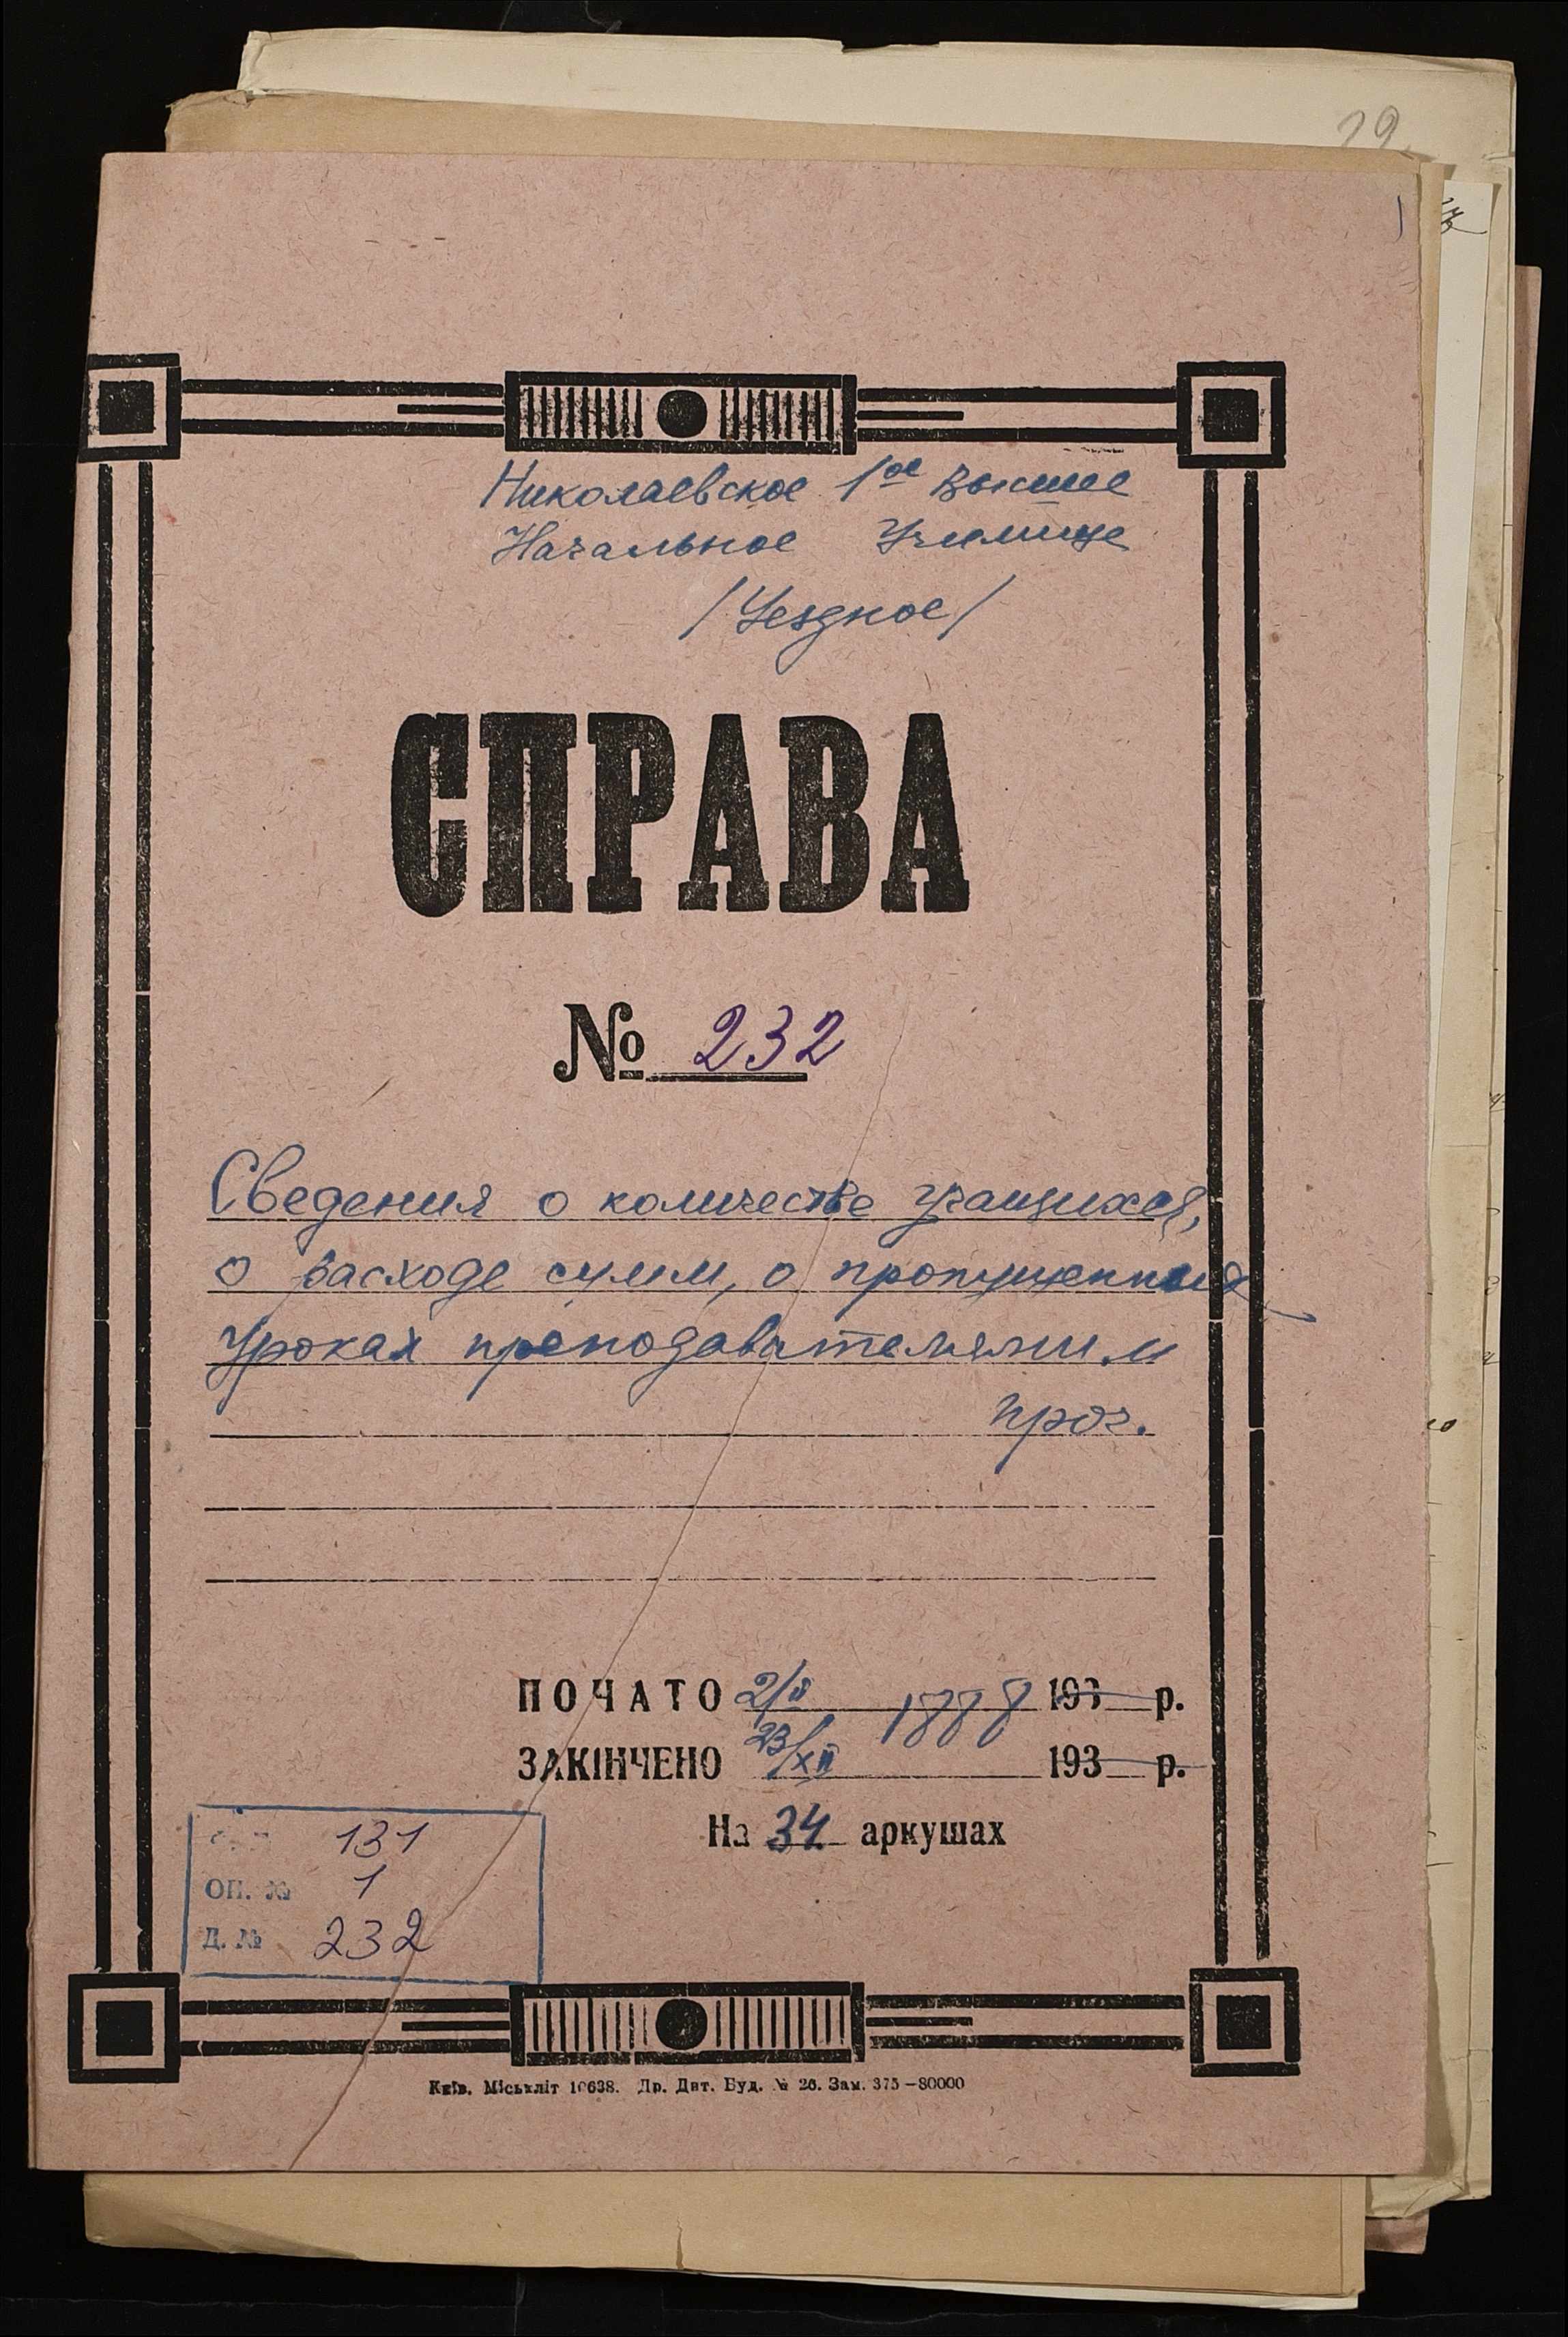 29
Николаевское 1ое Высшее
Начальное Училище
/Уездное/
СПРАВА
№ 232
Сведения о количестве учащихся,
о расходе сумм, о пропущенных
уроках преподавателями и
проч.
ПОЧАТО 2/II 1888 193 р.
ЗАКІНЧЕНО 23/XII 193 р.
На 34 аркушах
131
ОП. № 1
Д. № 232
Київ. Міськліт 10638. Др. Днт. Буд. № 26. Зам. 375-80000